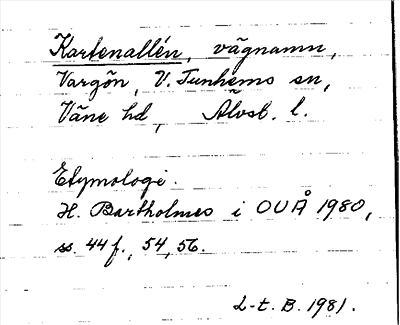 Kartenallén, vägnamn,
Vargön, V. Tunhems sn,
Väne hd, Älvsb. l.
Etymologi.
H. Bartholmes i OUÅ 1980,
ss. 44 f., 54, 56.
L-t. B. 1981.